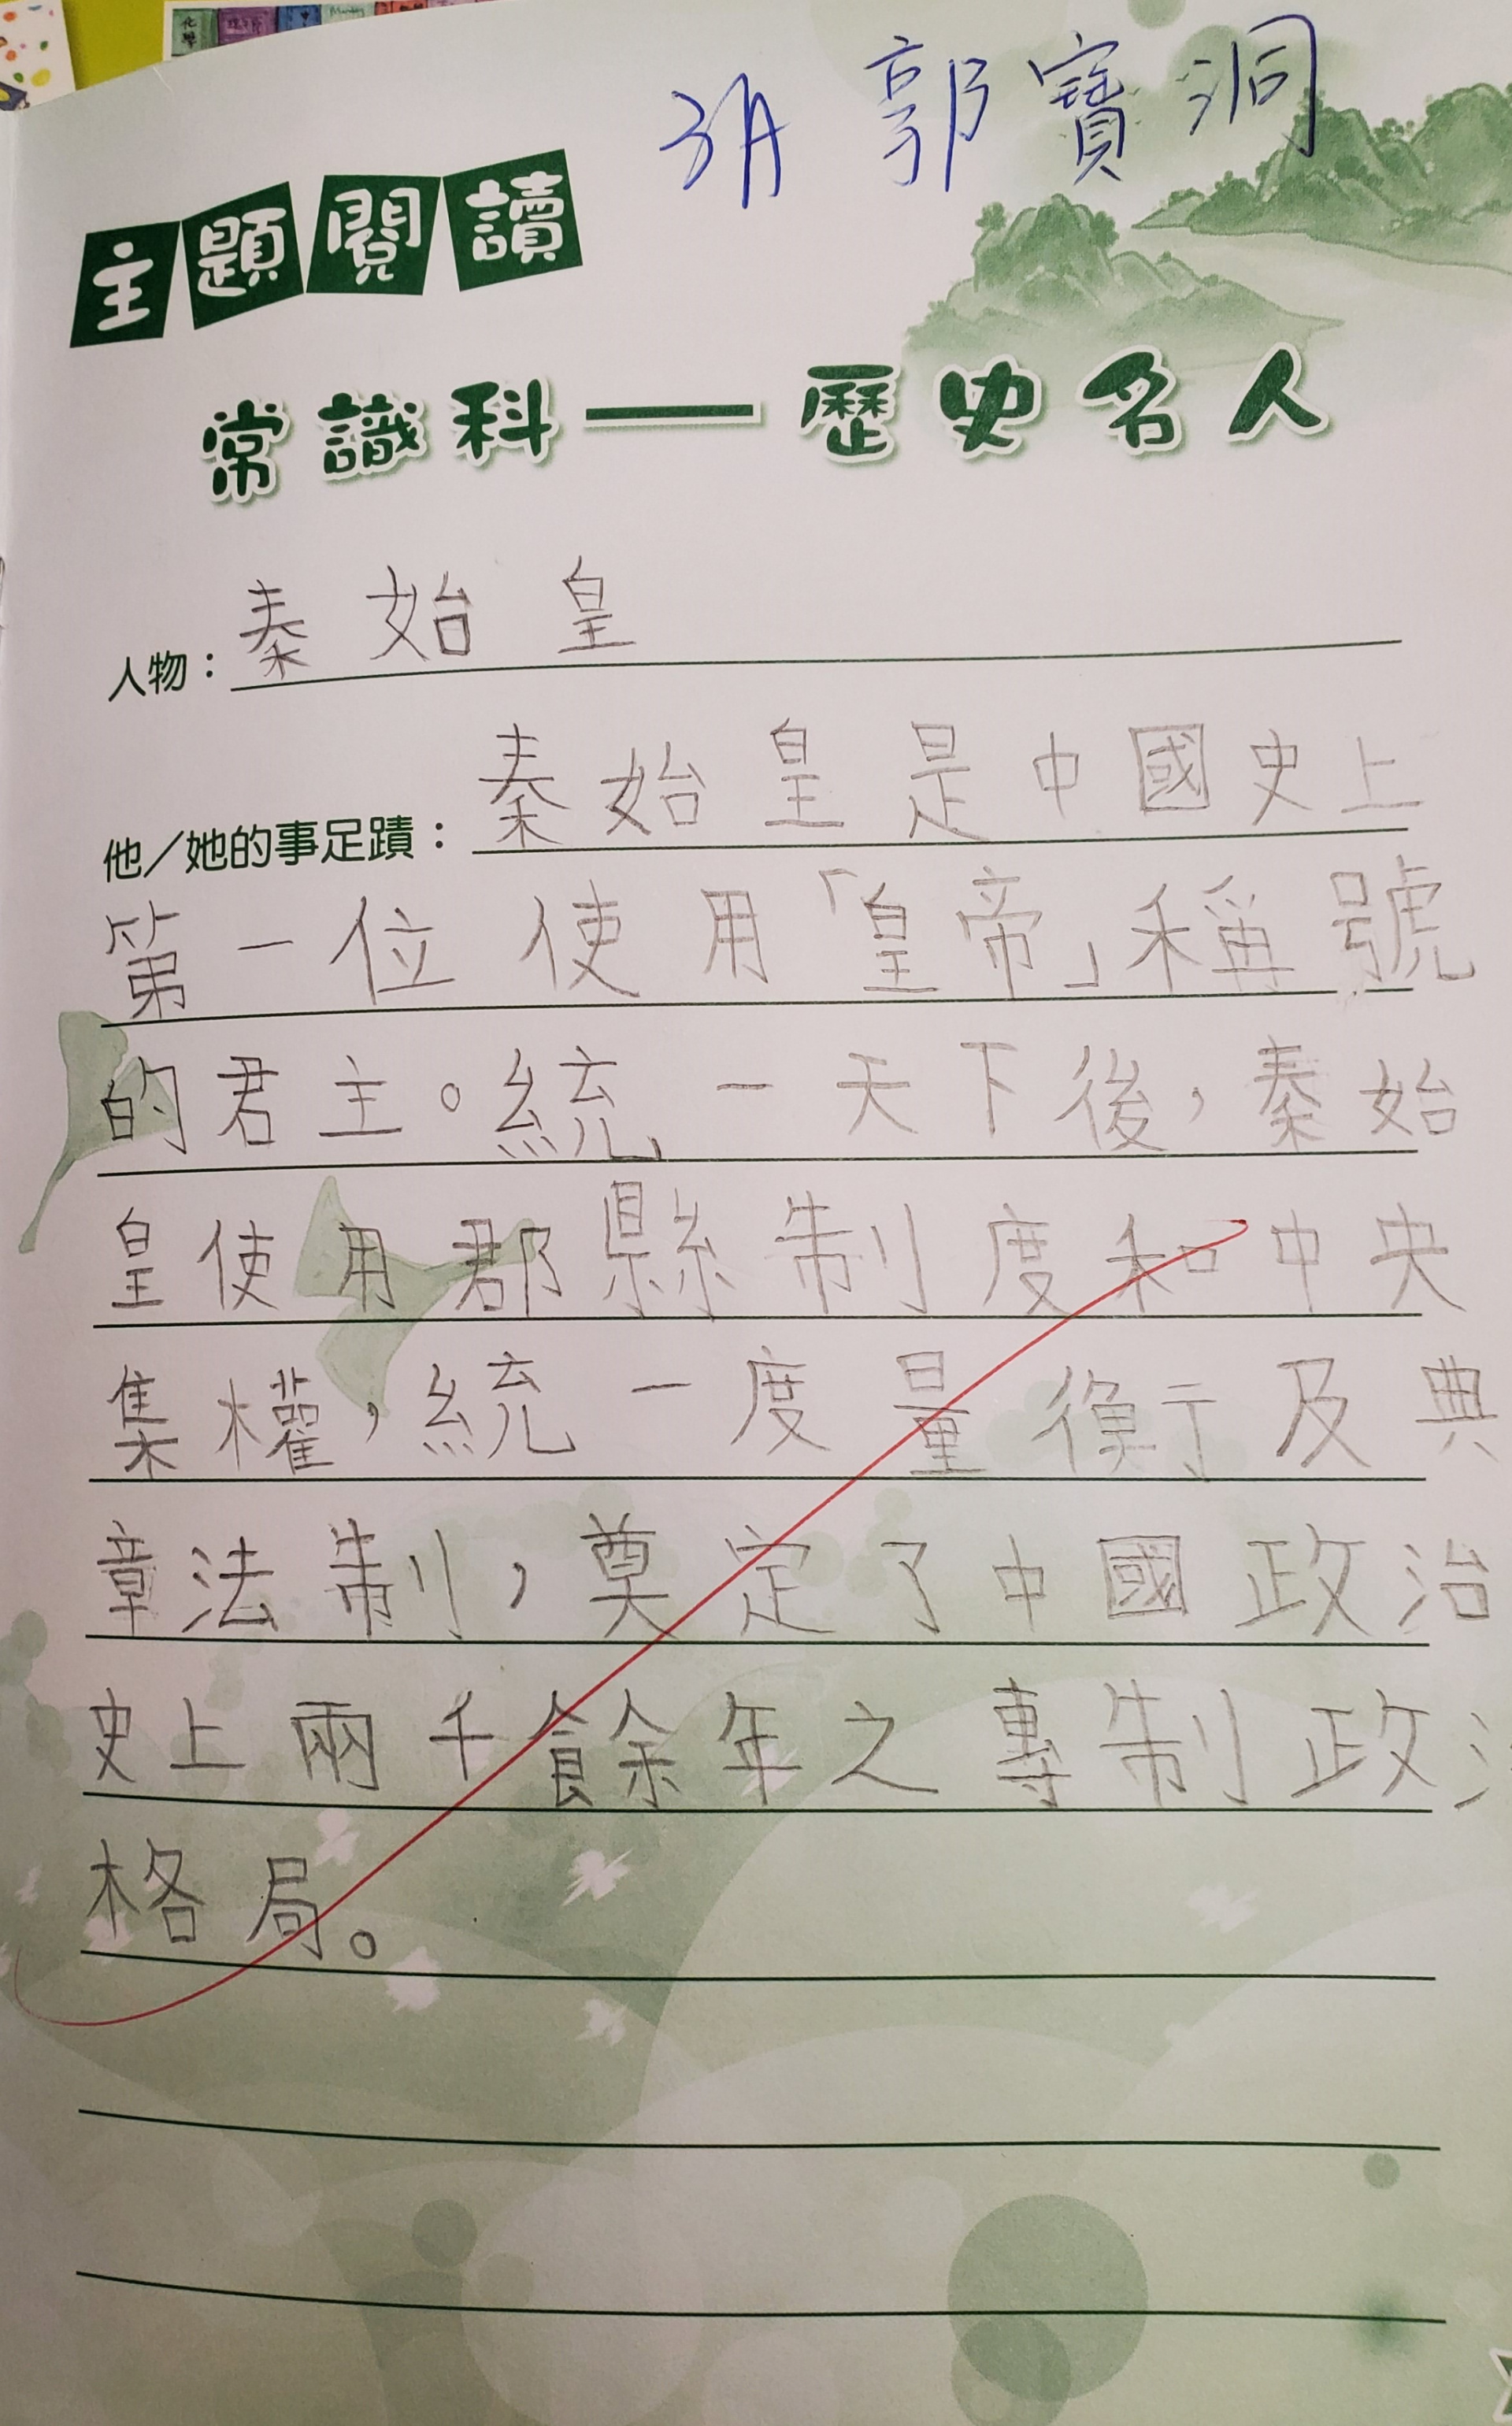 化學
3A 郭寶洞
主題閱讀
常識科——歷史名人
人物：秦始皇
他／她的事足蹟：秦始皇是中國史上
第一位使用「皇帝」稱號
的君主。統一天下後，秦始
皇使用郡縣制度和中央
集權，統一度量衡及典
章法制，奠定了中國政治
史上兩千餘年之專制政治
格局。